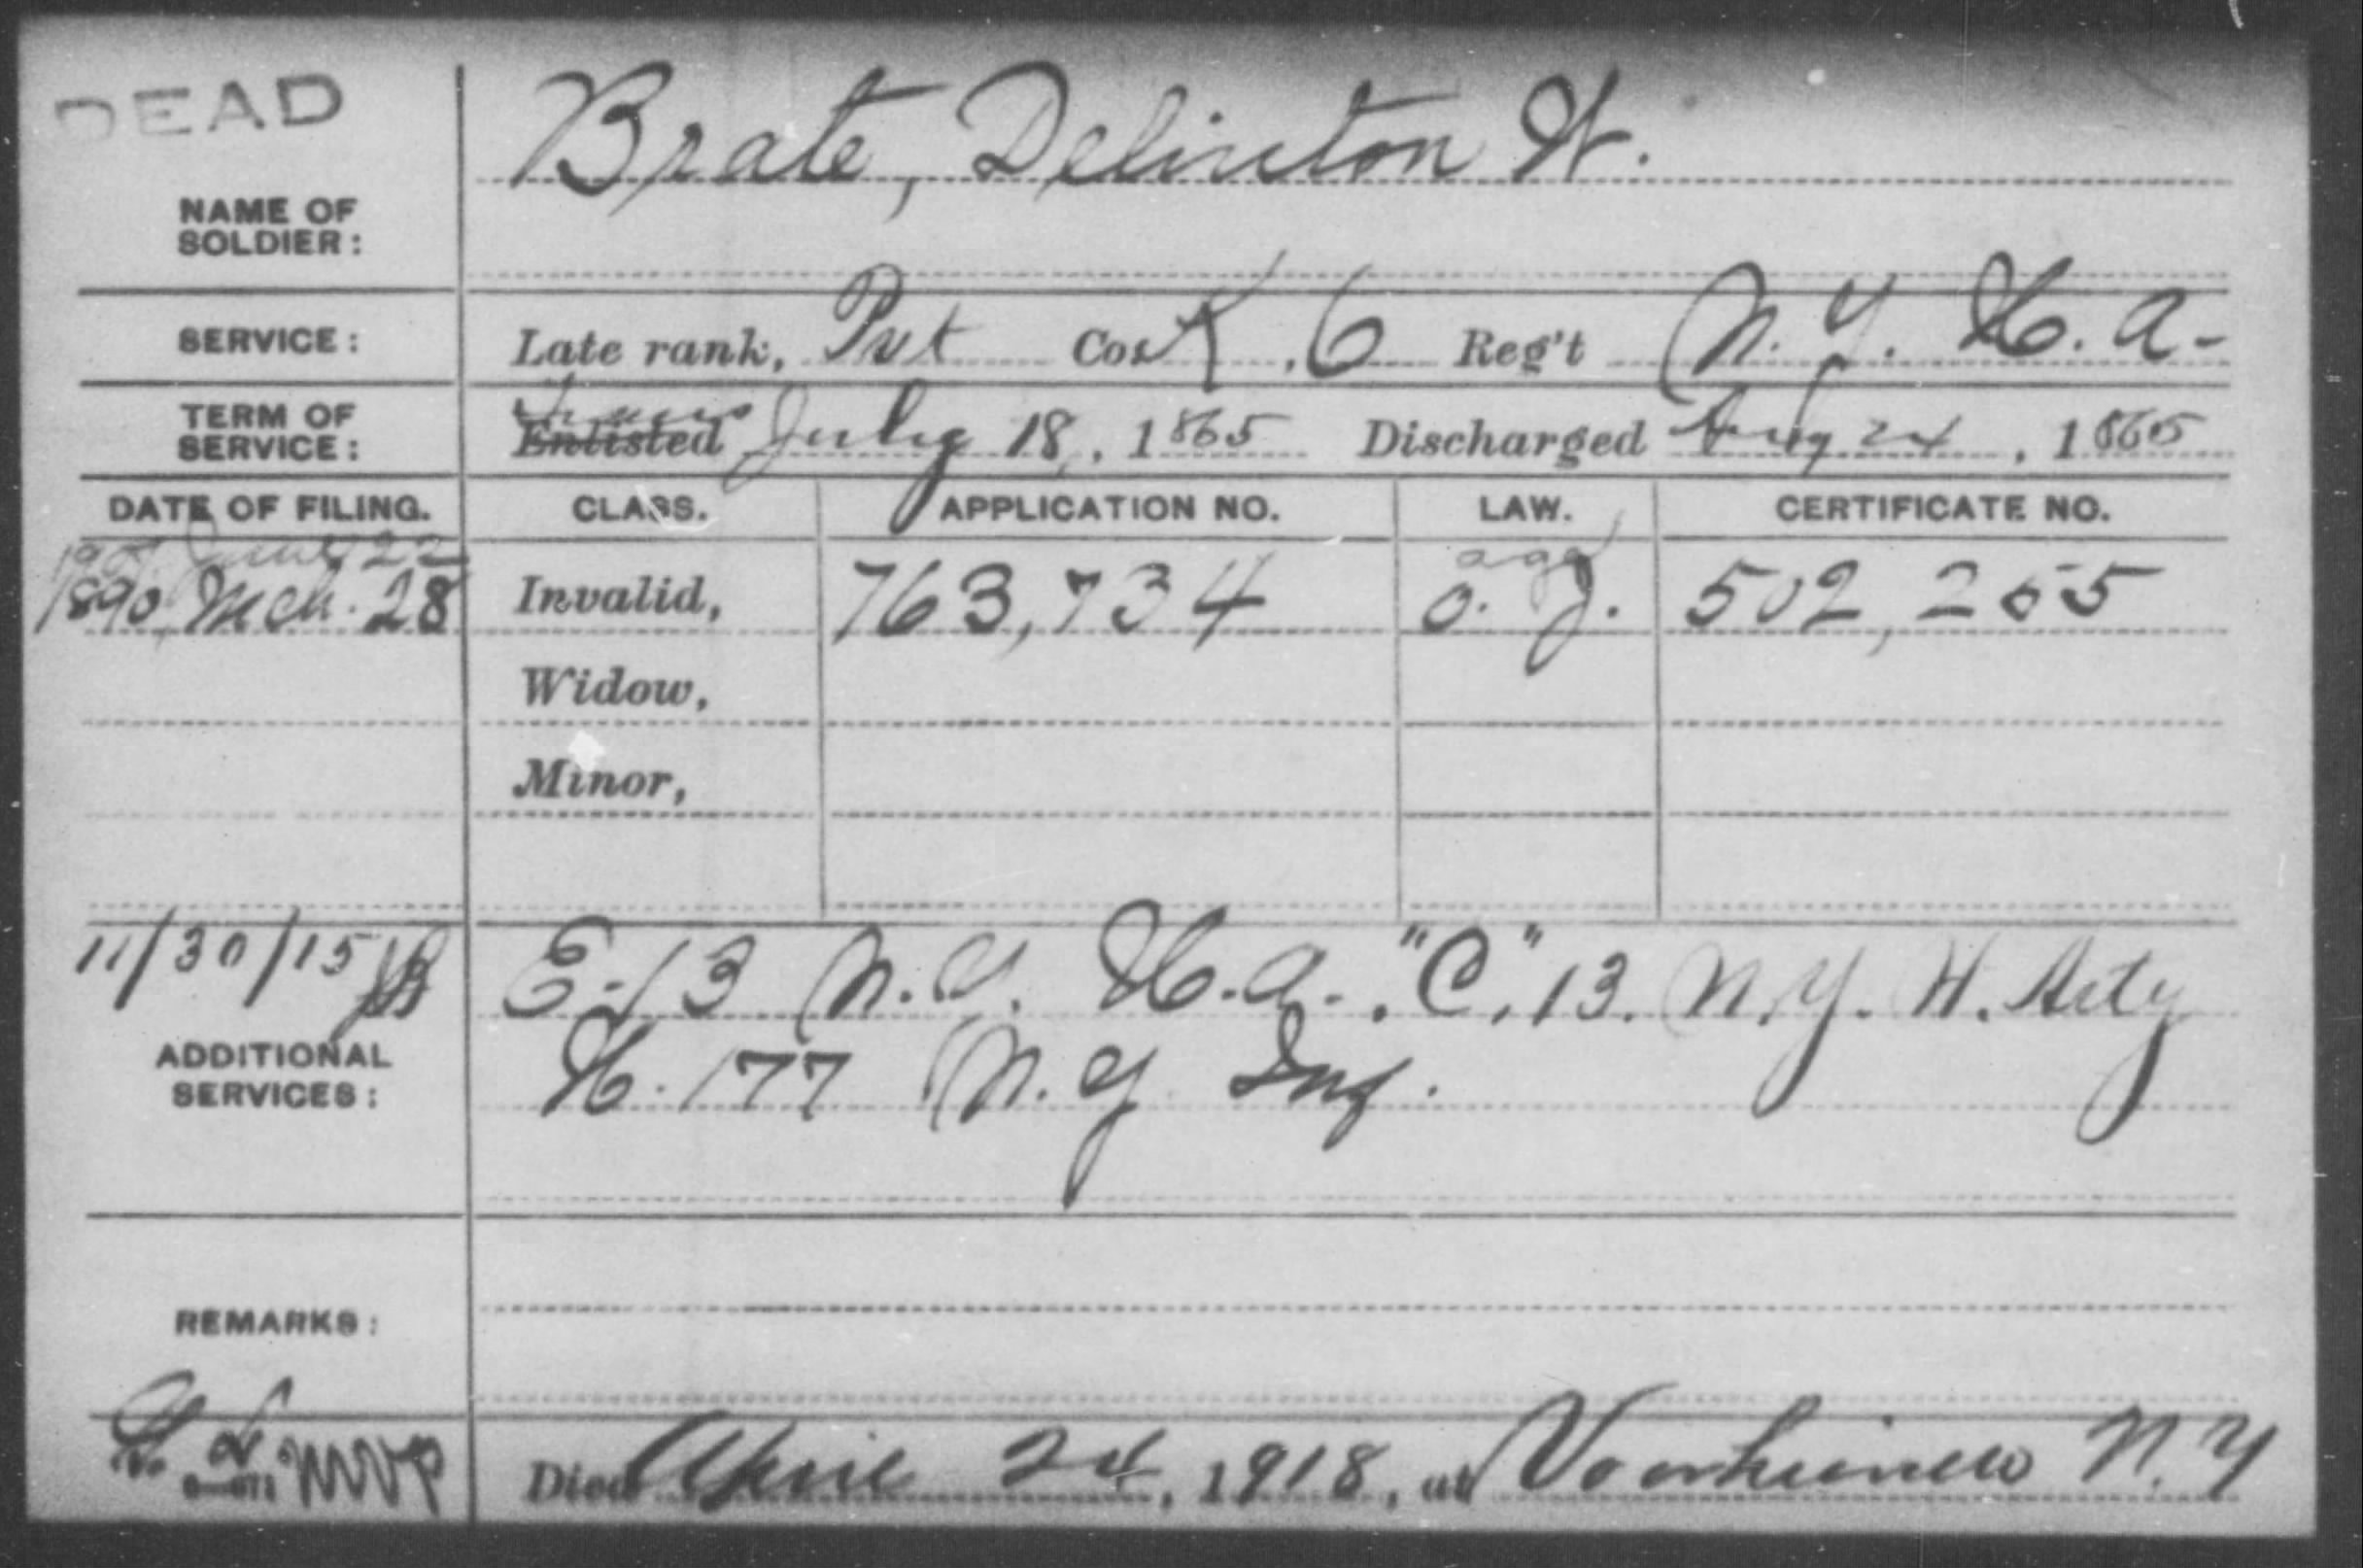 DEAD
NAME OF SOLDIER:
Brate, Delinton W.
SERVICE:
Late rank, Pvt Co. K, 6 Reg't N.Y. H. A.
TERM OF SERVICE:
Trans
Enlisted July 18, 1865 Discharged Aug 24, 1865
DATE OF FILING. CLASS. APPLICATION NO. LAW. CERTIFICATE NO.
June 22 age
1890 Mch. 28 Invalid, 763,734 O. J. 502,255
Widow,
Minor,
11/30/15 E. 13 N.Y. H.A., "C," 13. N.Y. H. Arty
ADDITIONAL SERVICES:
H. 177 N.Y. Inf.
REMARKS:
MVP Died April 24, 1918, at N.Y